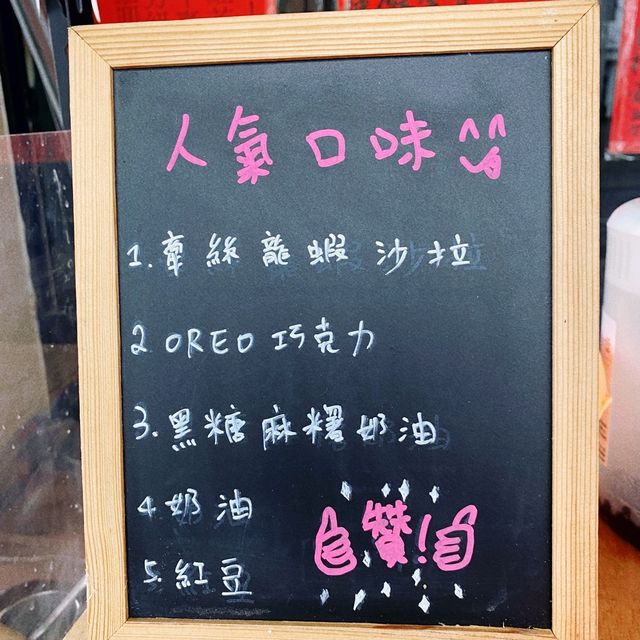 人氣口味
1. 牽絲龍蝦沙拉
2 OREO 巧克力
3. 黑糖麻糬奶油
4 奶油
5. 紅豆
讚!